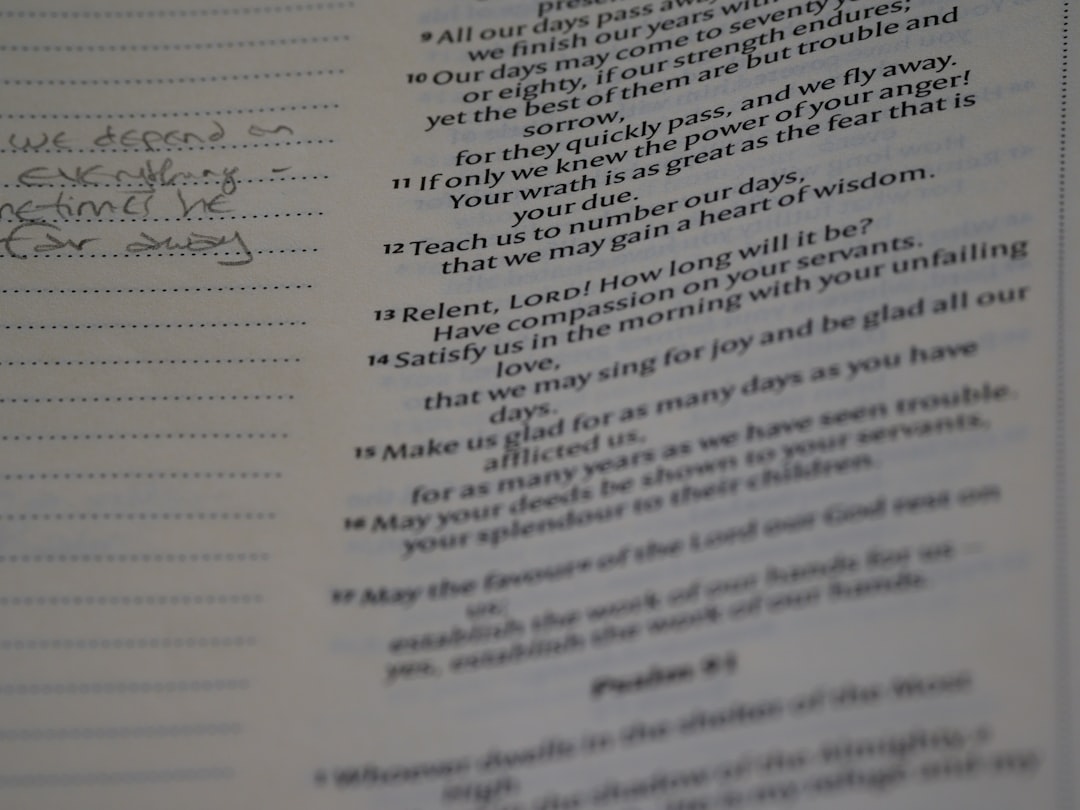 we depend on
everything -
he
far away
9 All our days pass
we finish our years
10 Our days may come to seventy
or eighty, if our strength endures;
yet the best of them are but trouble and
sorrow,
for they quickly pass, and we fly away.
11 If only we knew the power of your anger!
Your wrath is as great as the fear that is
your due.
12 Teach us to number our days,
that we may gain a heart of wisdom.
13 Relent, LORD! How long will it be?
Have compassion on your servants.
14 Satisfy us in the morning with your unfailing
love,
that we may sing for joy and be glad all our
days.
15 Make us glad for as many days as you have
afflicted us,
for as many years as we have seen trouble.
16 May your deeds be shown to your servants,
your splendour to their children.
17 May the favour of the Lord our God rest on
us;
establish the work of our hands for us –
yes, establish the work of our hands.
Psalm 91
1 Whoever dwells in the shelter of the Most
High
the shadow of the Almighty